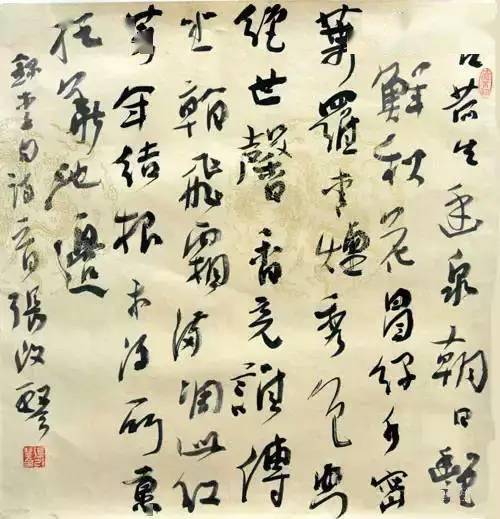 荷生幽泉朝日艷
鮮秋花冒綠水密
葉羅青煙秀色空
絕世馨香竟誰傳
坐看飛霜滿凋此紅
芳年結根未得所愿
托華池邊
錄李白詩張改琴